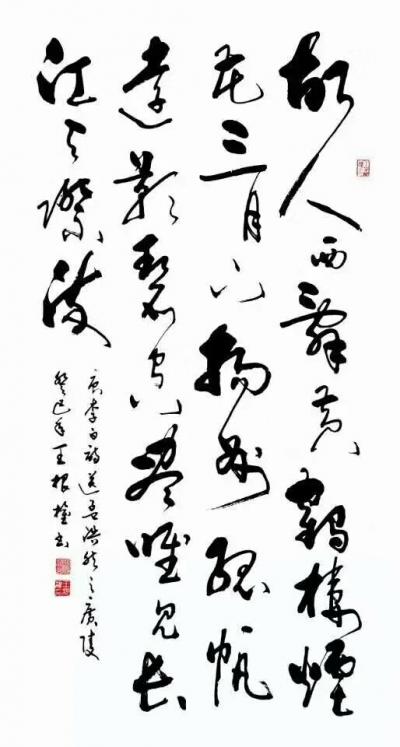 故人西辭黃鶴樓煙
花三月下揚州孤帆
遠影碧空盡唯見長
江天際流
唐李白詩送孟浩然之廣陵
癸巳年王根書